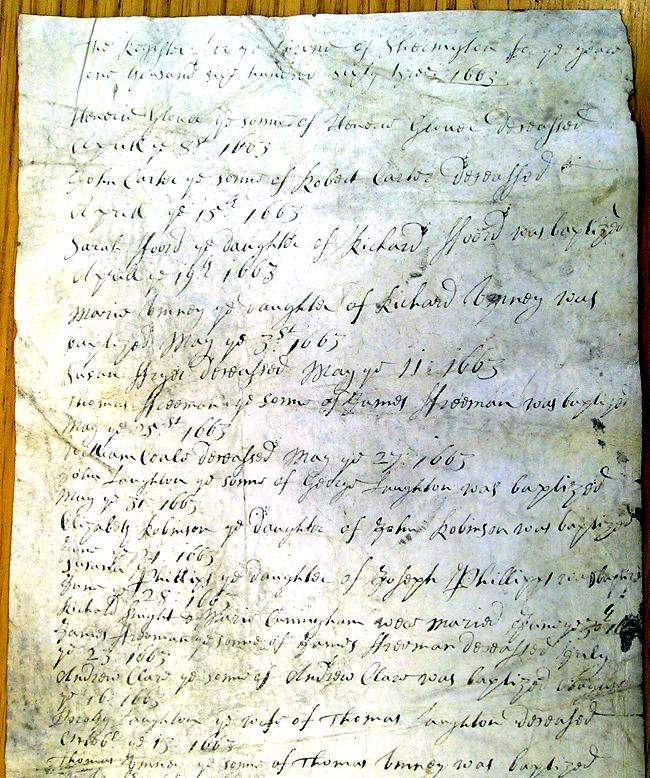 The Register for ye towne of for ye yeare
one thousand six hundred sixty three 1663
Henerie Glover ye sonne of Henerie Glover deseassed
Aprill ye 8st 1663
John Carter ye sonne of Robert Carter deseassed
Aprill ye 15st 1663
Sarah Foord ye daughter of Richard Foord was baptized
Aprill ye 19 1663
Marie ye daughter of Richard was
baptized May ye 3st 1663
Susan Fryer deseassed May ye 11: 1663
Thomas Freeman ye sonne of James Freeman was baptized
May ye 25st 1663
William Coale deseassed May ye 27: 1663
John Laughton ye sonne of George Laughton was baptized
May ye 31 1663
Elizabeth Robinson ye daughter of John Robinson was baptized
June ye 1663
Susanna Phillips ye daughter of Joseph Phillipps was baptized
June ye 28: 1663
Richard & Marie Cuningham were maried June ye
James Freeman ye sonne of James Freeman deseassed July
ye 23: 1663
Andrew Clare ye sonne of Andrew Clare was baptized
ye 16: 1663
Dorothy Laughton ye wife of Thomas Laughton deseassed
ye 15: 1663
Thomas ye sonne of Thomas was baptized